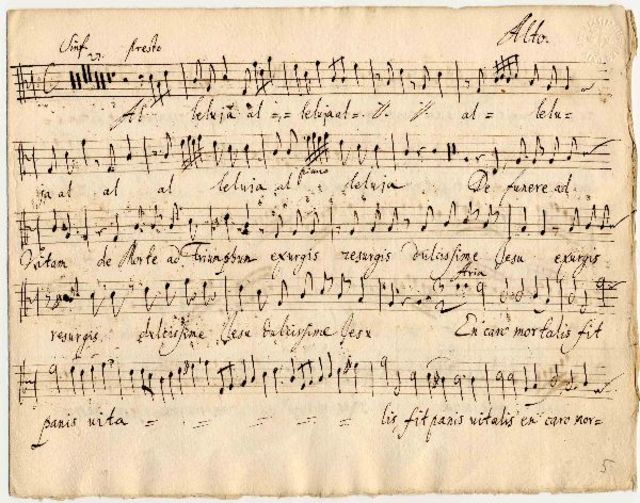 Alto.
Sinf 27. Presto
Al leluja al =,= lelujaal= al= lelu=
ja al al al leluja al piano leluja De funere ad
Vitam de Morte ad Triumphum exurgis resurgis dulcissime Jesu exurgis
Aria
resurgis dulcissime Jesu dulcissime Jesu En caro mortalis fit
panis vita = = = = = lis fit panis vitalis en caro mor=
5